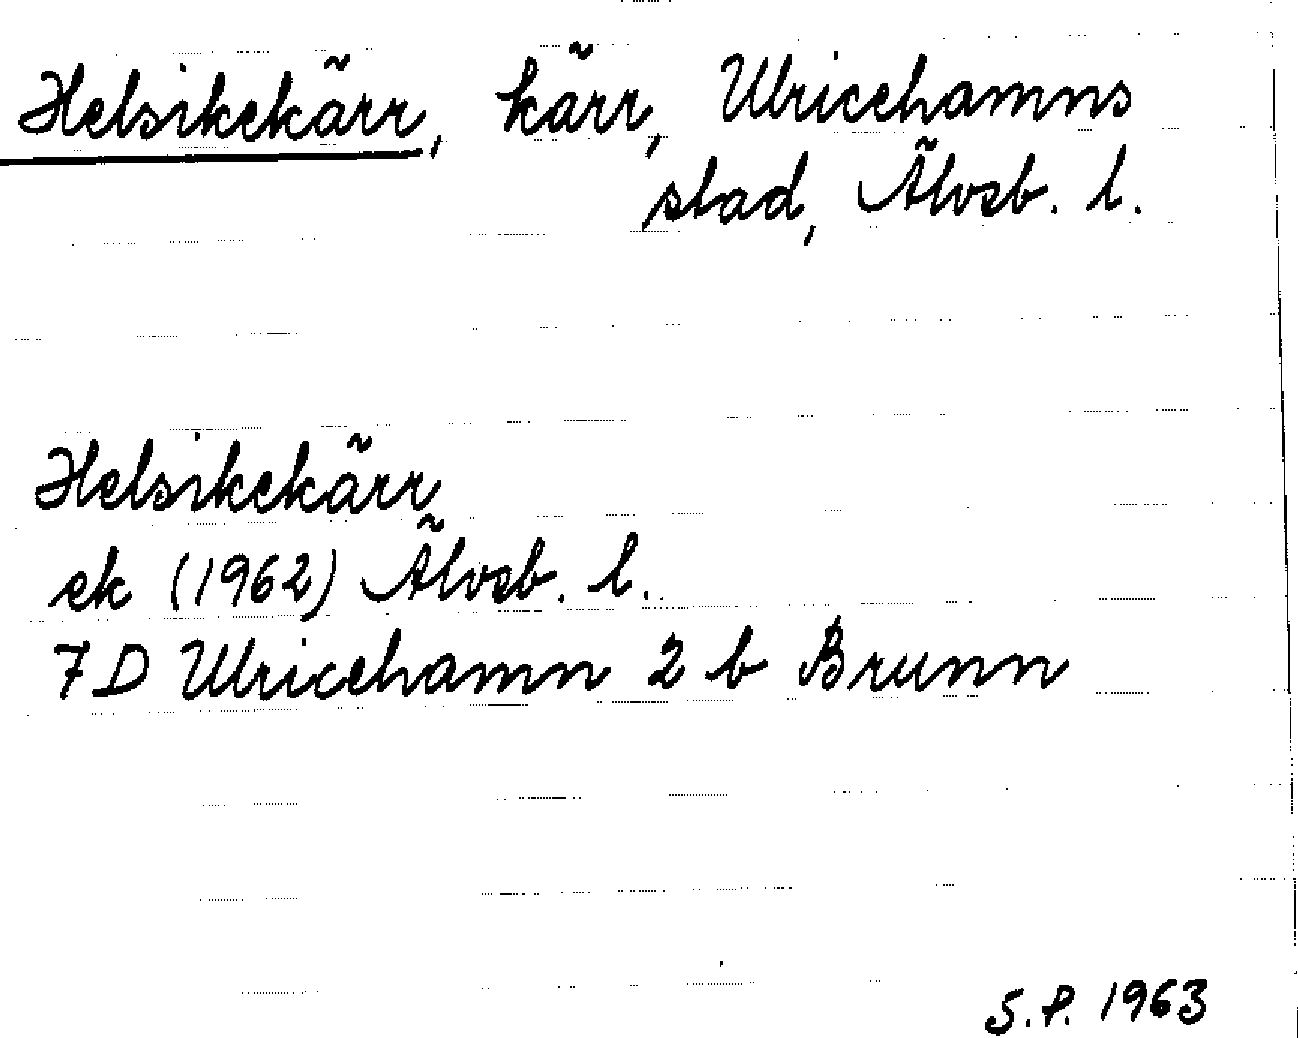 Helsikekärr, kärr, Ulricehamns
stad, Älvsb. l.
Helsikekärr
ek (1962) Älvsb. l.
7D Ulricehamn 2 b Brunn
S.P. 1963